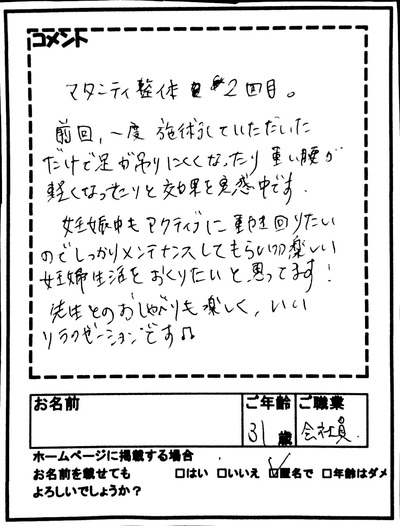 コメント
マタニティ整体 2回目。
前回、一度 施術していただいた
だけで足が吊りにくくなったり 重い腰が
軽くなったりと効果を実感中です。
妊娠中もアクティブに動き回りたい
のでしっかりメンテナンスしてもらいつつ楽しい
妊婦生活をおくりたいと思ってます！
先生とのおしゃべりも楽しく、いい
リラクゼーションです♫
お名前 ご年齢 ご職業
31歳 会社員
ホームページに掲載する場合
お名前を載せても □はい □いいえ ☑匿名で □年齢はダメ
よろしいでしょうか？